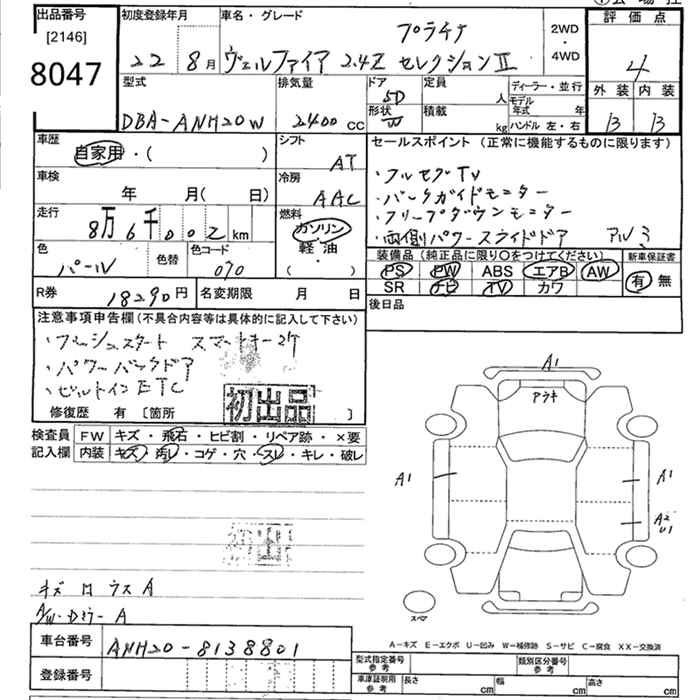 出品番号
[2146]
8047
初度登録年月
22 8月
車名・グレード
ヴェルファイア 2.4Z プラチナ セレクションⅡ
2WD
・
4WD
評価点
4
外装 内装
B B
型式
DBA-ANH20W
排気量
2400 cc
ドア
5D
形状
定員
人
積載
kg
ディーラー・並行
モデル
年式 年
ハンドル 左・右
車歴
自家用・( )
シフト
AT
車検
年 月( 日)
冷房
AAC
走行
8万6千002km
燃料
ガソリン
軽・油
( )
色
パール
色替
色コード
070
R券
18290円
名変期限 月 日
セールスポイント (正常に機能するものに限ります)
・フルセグTV
・パークガイドモニター
・フリップダウンモニター
・両側パワースライドドア アルミ
装備品 (純正品に限り○をつけてください)
新車保証書
PS PW ABS エアB AW
SR ナビ TV カワ
有 無
後日品
注意事項申告欄 (不具合内容等は具体的に記入して下さい)
・プッシュスタート スマートキー2ケ
・パワーバックドア
・ビルトインETC
修復歴 有 [箇所 ]
初出品
検査員
記入欄
FW キズ・飛石・ヒビ割・リペア跡・×要
内装 キズ・汚レ・コゲ・穴・スレ・キレ・破レ
初出
A1
A1
A1
A2
U1
スペア
キズ A
A/W・Dミラー A
車台番号
ANH20-8138801
登録番号
A-キズ E-エクボ U-凹み W-補修跡 S-サビ C-腐食 XX-交換済
型式指定番号
参考
類別区分番号
参考
車庫証明用
参考
長さ cm 幅 cm 高さ cm